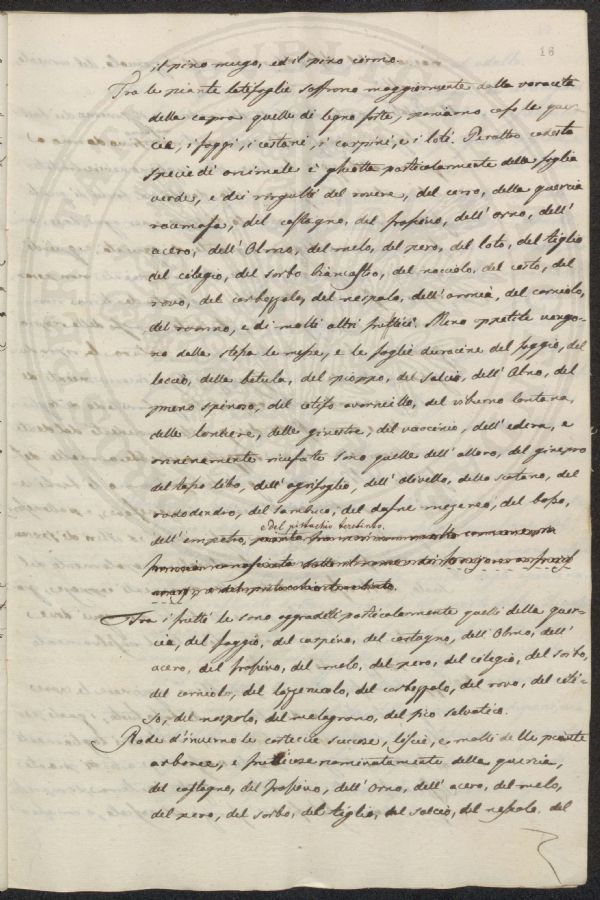 16
il pino mugo, ed il pino cirmo.
Tra le piante latifoglie soffrono maggiormente dalla voracità
della capra quelle di legno forte, poniamo caso le quer-
cie, i faggi, i castani, i carpini, e i loti. Peraltro codesta
specie di animale è ghiotta particolarmente delle foglie
verdi, e dei virgulti del rovere, del cerro, della quercia
, del castagno, del frassino, dell'orno, dell'
acero, dell'Olmo, del melo, del pero, del loto, del tiglio
del ciliegio, del sorbo, del nocciolo, del
rovo, del corbezzolo, del nespolo, dell' , del corniolo,
del , e di molti altri frutici. Meno appetite vengo-
no dalla stessa le messe, e le foglie del faggio, del
leccio, della betula, del pioppo, del salcio, dell'Alno, del
pruno spinoso, del citiso avorniello, del viburno lantana,
delle , delle ginestre, del vaccinio, dell'edera, e
ominamente rifiutate sono quelle dell'alloro, del ginepro
del tasso libo, dell'agrifoglio, dell'olivello, dello scotano, del
rododendro, del sambuco, del dafne mezereo, del bosso,
del pistachio terebinto.
dell'empetro,
Tra i frutti le sono aggraditi particolarmente quelli della quer-
cia, del faggio, del carpino, del castagno, dell'Olmo, dell'
acero, del frassino, del melo, del pero, del ciliegio, del sorbo,
del corniolo, del lazzeruolo, del corbezzolo, del rovo, del citi-
so, del nespolo, del melagrano, del fico selvatico.
Rode d'inverno le corteccie succose, liscie, e molli delle piante
arboree, e fruticose nominatamente della quercia,
del castagno, del frassino, dell'Orno, dell'acero, del melo,
del pero, del sorbo, del tiglio, del salcio, del nespolo. del